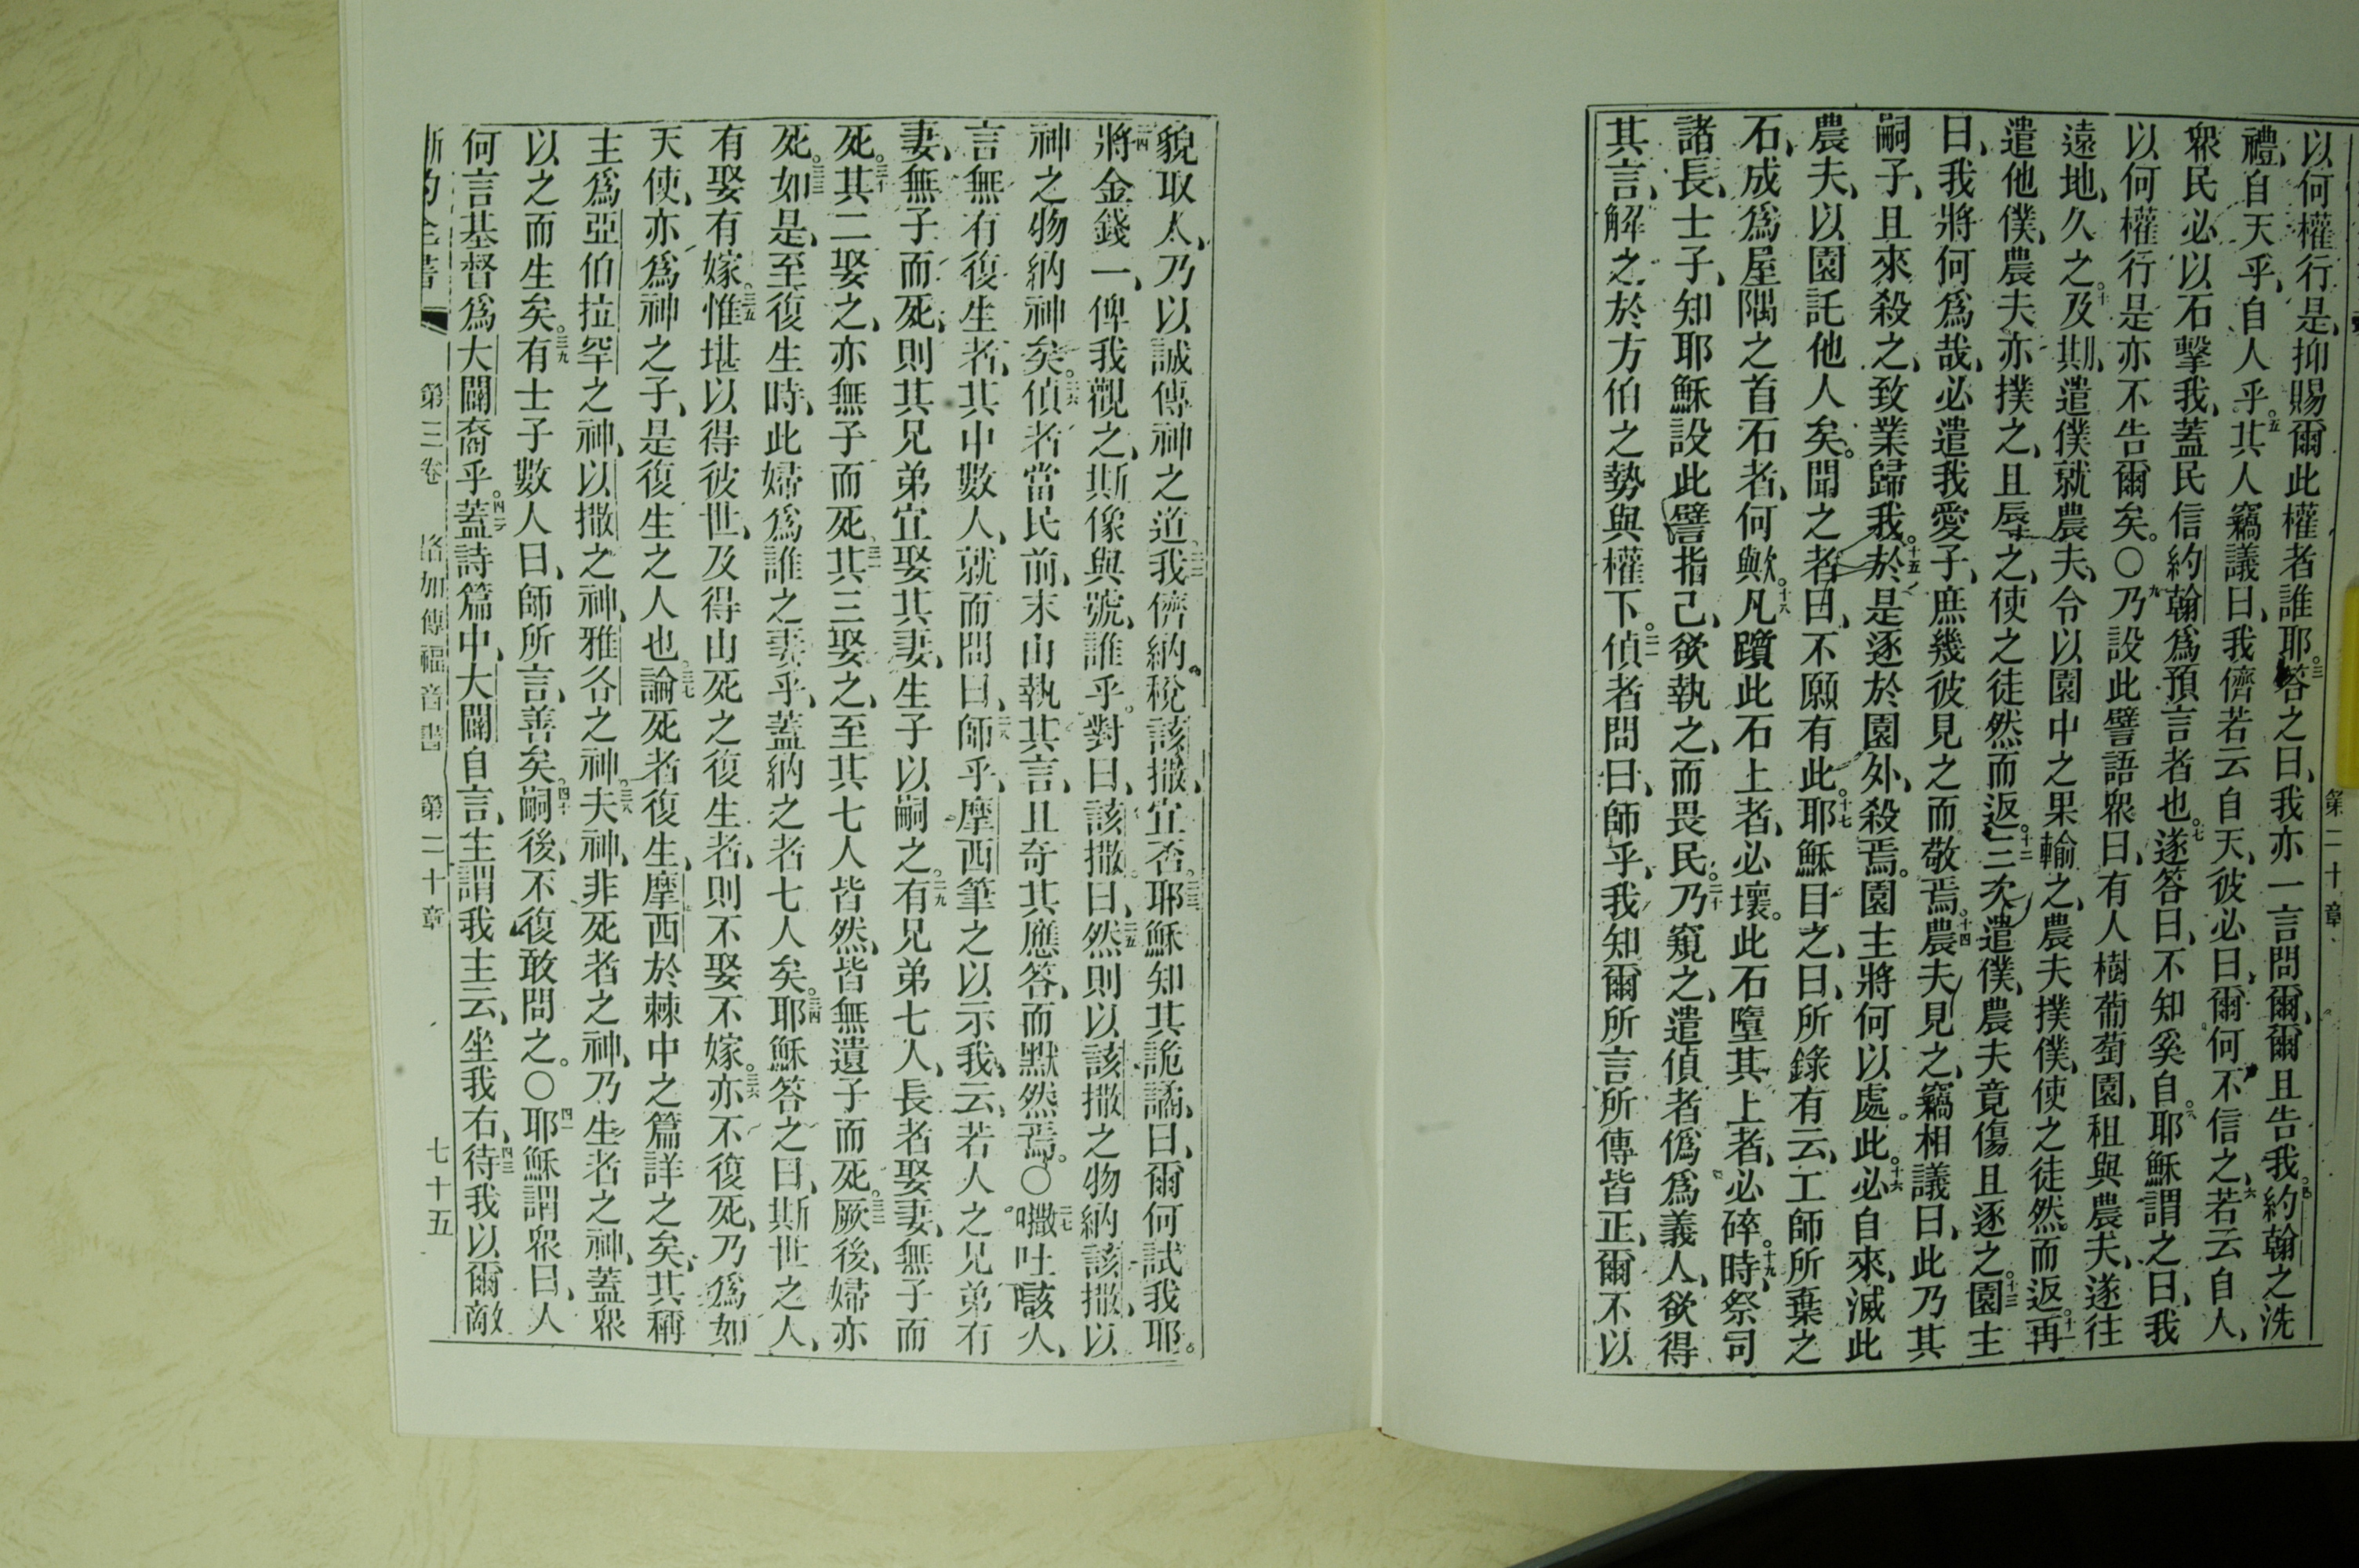 第二十章
以何權行是、抑賜爾此權者誰耶。三答之曰、我亦一言問爾、爾且告我、四約翰之洗
禮、自天乎、自人乎。五其人竊議曰、我儕若云自天、彼必曰、爾何不信之、六若云自人、
眾民必以石擊我、蓋民信約翰爲預言者也。七遂答曰、不知奚自。八耶穌謂之曰、我
以何權行是、亦不告爾矣。○九乃設此譬語眾曰、有人樹葡萄園、租與農夫、遂往
遠地久之。十及期、遣僕就農夫、令以園中之果輸之、農夫撲僕、使之徒然而返。十一再
遣他僕、農夫亦撲之、且辱之、使之徒然而返。十二三次遣僕、農夫竟傷且逐之。十三園主
曰、我將何爲哉、必遣我愛子、庶幾彼見之而敬焉。十四農夫見之、竊相議曰、此乃其
嗣子、且來殺之、致業歸我。十五於是逐於園外、殺焉。園主將何以處此。十六必自來、滅此
農夫、以園託他人矣。聞之者曰、不願有此。十七耶穌目之、曰、所錄有云、工師所棄之
石、成爲屋隅之首石者、何與。十八凡躓此石上者、必壞。此石墮其上者、必碎。十九時、祭司
諸長、士子、知耶穌設此譬指己、欲執之、而畏民。二十乃窺之、遣偵者僞爲義人、欲得
其言、解之於方伯之勢與權下。二一偵者問曰、師乎、我知爾所言所傳皆正、爾不以
貌取人、乃以誠傳神之道。二二我儕納稅該撒、宜否。二三耶穌知其詭譎、曰、爾何試我耶。
二四將金錢一、俾我觀之、斯像與號、誰乎。對曰、該撒。曰、二五然則以該撒之物納該撒、以
神之物納神矣。二六偵者當民前、未由執其言、且奇其應答、而默然焉。○二七㘔吐㖠人、
言無有復生者、其中數人、就而問曰、二八師乎、摩西筆之以示我、云、若人之兄弟有
妻、無子而死、則其兄弟宜娶其妻、生子以嗣之。二九有兄弟七人、長者娶妻、無子而
死。三十其二娶之、亦無子而死。三一其三娶之、至其七人皆然、皆無遺子而死。三二厥後、婦亦
死。三三如是、至復生時、此婦爲誰之妻乎、蓋納之者七人矣。三四耶穌答之曰、斯世之人、
有娶有嫁。三五惟堪以得彼世、及得由死之復生者、則不娶不嫁。三六亦不復死、乃爲如
天使、亦爲神之子、是復生之人也。三七論死者復生、摩西於棘中之篇詳之矣、其稱
主爲亞伯拉罕之神、以撒之神、雅各之神。三八夫神、非死者之神、乃生者之神、蓋眾
以之而生矣。三九有士子數人曰、師所言、善矣。四十嗣後、不復敢問之。○四一耶穌謂眾曰、人
何言基督爲大闢裔乎。四二蓋詩篇中、大闢自言、主謂我主云、坐我右、四三待我以爾敵
新約全書 第三卷 路加傳福音書 第二十章 七十五